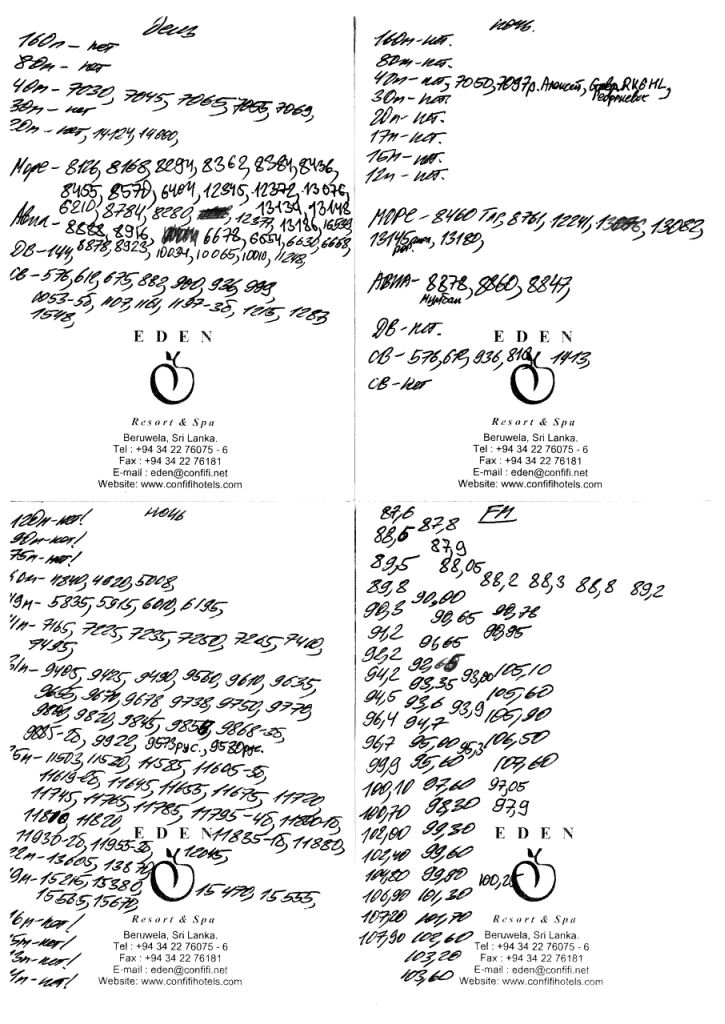 день
160м – нет
80м – нет
40м – 7030, 7045, 7065, 7055, 7069,
30м – нет
20м – нет, 14124, 14000,
Море – 8126, 8168, 8294, 8362, 8381, 8436,
8455, 8570, 6404, 12345, 12372, 13076,
6210, 8784, 8280, 12377, 13134, 13148
Авиа – 8888, 8916, 6678, 6654, 6630, 6668, 13186, 16539
ДВ – 144, 8878, 8923, 10024, 10065, 10010, 11278,
СВ – 576, 612, 675, 882, 900, 936, 999,
1053-5б, 1107, 1161, 1197-3б, 1215, 1287,
1548,
EDEN
Resort & Spa
Beruwela, Sri Lanka.
Tel : +94 34 22 76075 - 6
Fax : +94 34 22 76181
E-mail : eden@confifi.net
Website: www.confifihotels.com
ночь.
160м – нет.
80м – нет.
40м – нет, 7050, 7097 р. Алексей, RK6HL,
30м – нет. Георгиевск
20м – нет.
17м – нет.
15м – нет.
12м – нет.
МОРЕ – 8460 Тлг, 8761, 12241, 13076, 13082,
13145, 13180,
АВИА – 8878, 8860, 8847,
ДВ – нет.
СВ – 576, 612, 936, 819, 1413,
СВ – нет
EDEN
Resort & Spa
Beruwela, Sri Lanka.
Tel : +94 34 22 76075 - 6
Fax : +94 34 22 76181
E-mail : eden@confifi.net
Website: www.confifihotels.com
ночь
120м – нет!
90м – нет!
75м – нет!
60м – 4840, 4920, 5008,
49м – 5835, 5915, 6010, 6195,
41м – 7165, 7225, 7235, 7250, 7265, 7410,
7495,
31м – 9405, 9425, 9490, 9560, 9610, 9635,
9655, 9670, 9678, 9738, 9750, 9779,
9800, 9820, 9845, 9855, 9868-3б,
9885-2б, 9922, 9573рус., 9580рус.
25м – 11503, 11520, 11585, 11605-3б,
11619-2б, 11645, 11655, 11675, 11720,
11745, 11765, 11785, 11795-4б, 11800-1б,
11810, 11820, 11835-1б, 11880,
11930-2б, 11955-3б, 12045,
22м – 13605, 13870,
19м – 15215, 15380, 15470, 15555,
15585, 15670,
16м – нет!
15м – нет!
13м – нет!
11м – нет!
EDEN
Resort & Spa
Beruwela, Sri Lanka.
Tel : +94 34 22 76075 - 6
Fax : +94 34 22 76181
E-mail : eden@confifi.net
Website: www.confifihotels.com
FM
87,6 87,8
88,5 87,9
89,5 88,05
89,8 90,00 88,2 88,3 88,8 89,2
90,3 90,65 90,78
91,2 91,65 90,95
92,2 92,65
94,2 93,35 93,90 105,10
94,5 93,6 93,9 105,60
96,4 94,7 105,90
96,7 95,00 95,3 106,50
99,9 95,60 107,60
100,10 97,60 97,05
100,70 98,30 97,9
102,00 99,30
102,40 99,60
104,80 99,80 100,25
106,90 101,30
107,20 101,70
107,90 102,60
103,20
103,60
EDEN
Resort & Spa
Beruwela, Sri Lanka.
Tel : +94 34 22 76075 - 6
Fax : +94 34 22 76181
E-mail : eden@confifi.net
Website: www.confifihotels.com